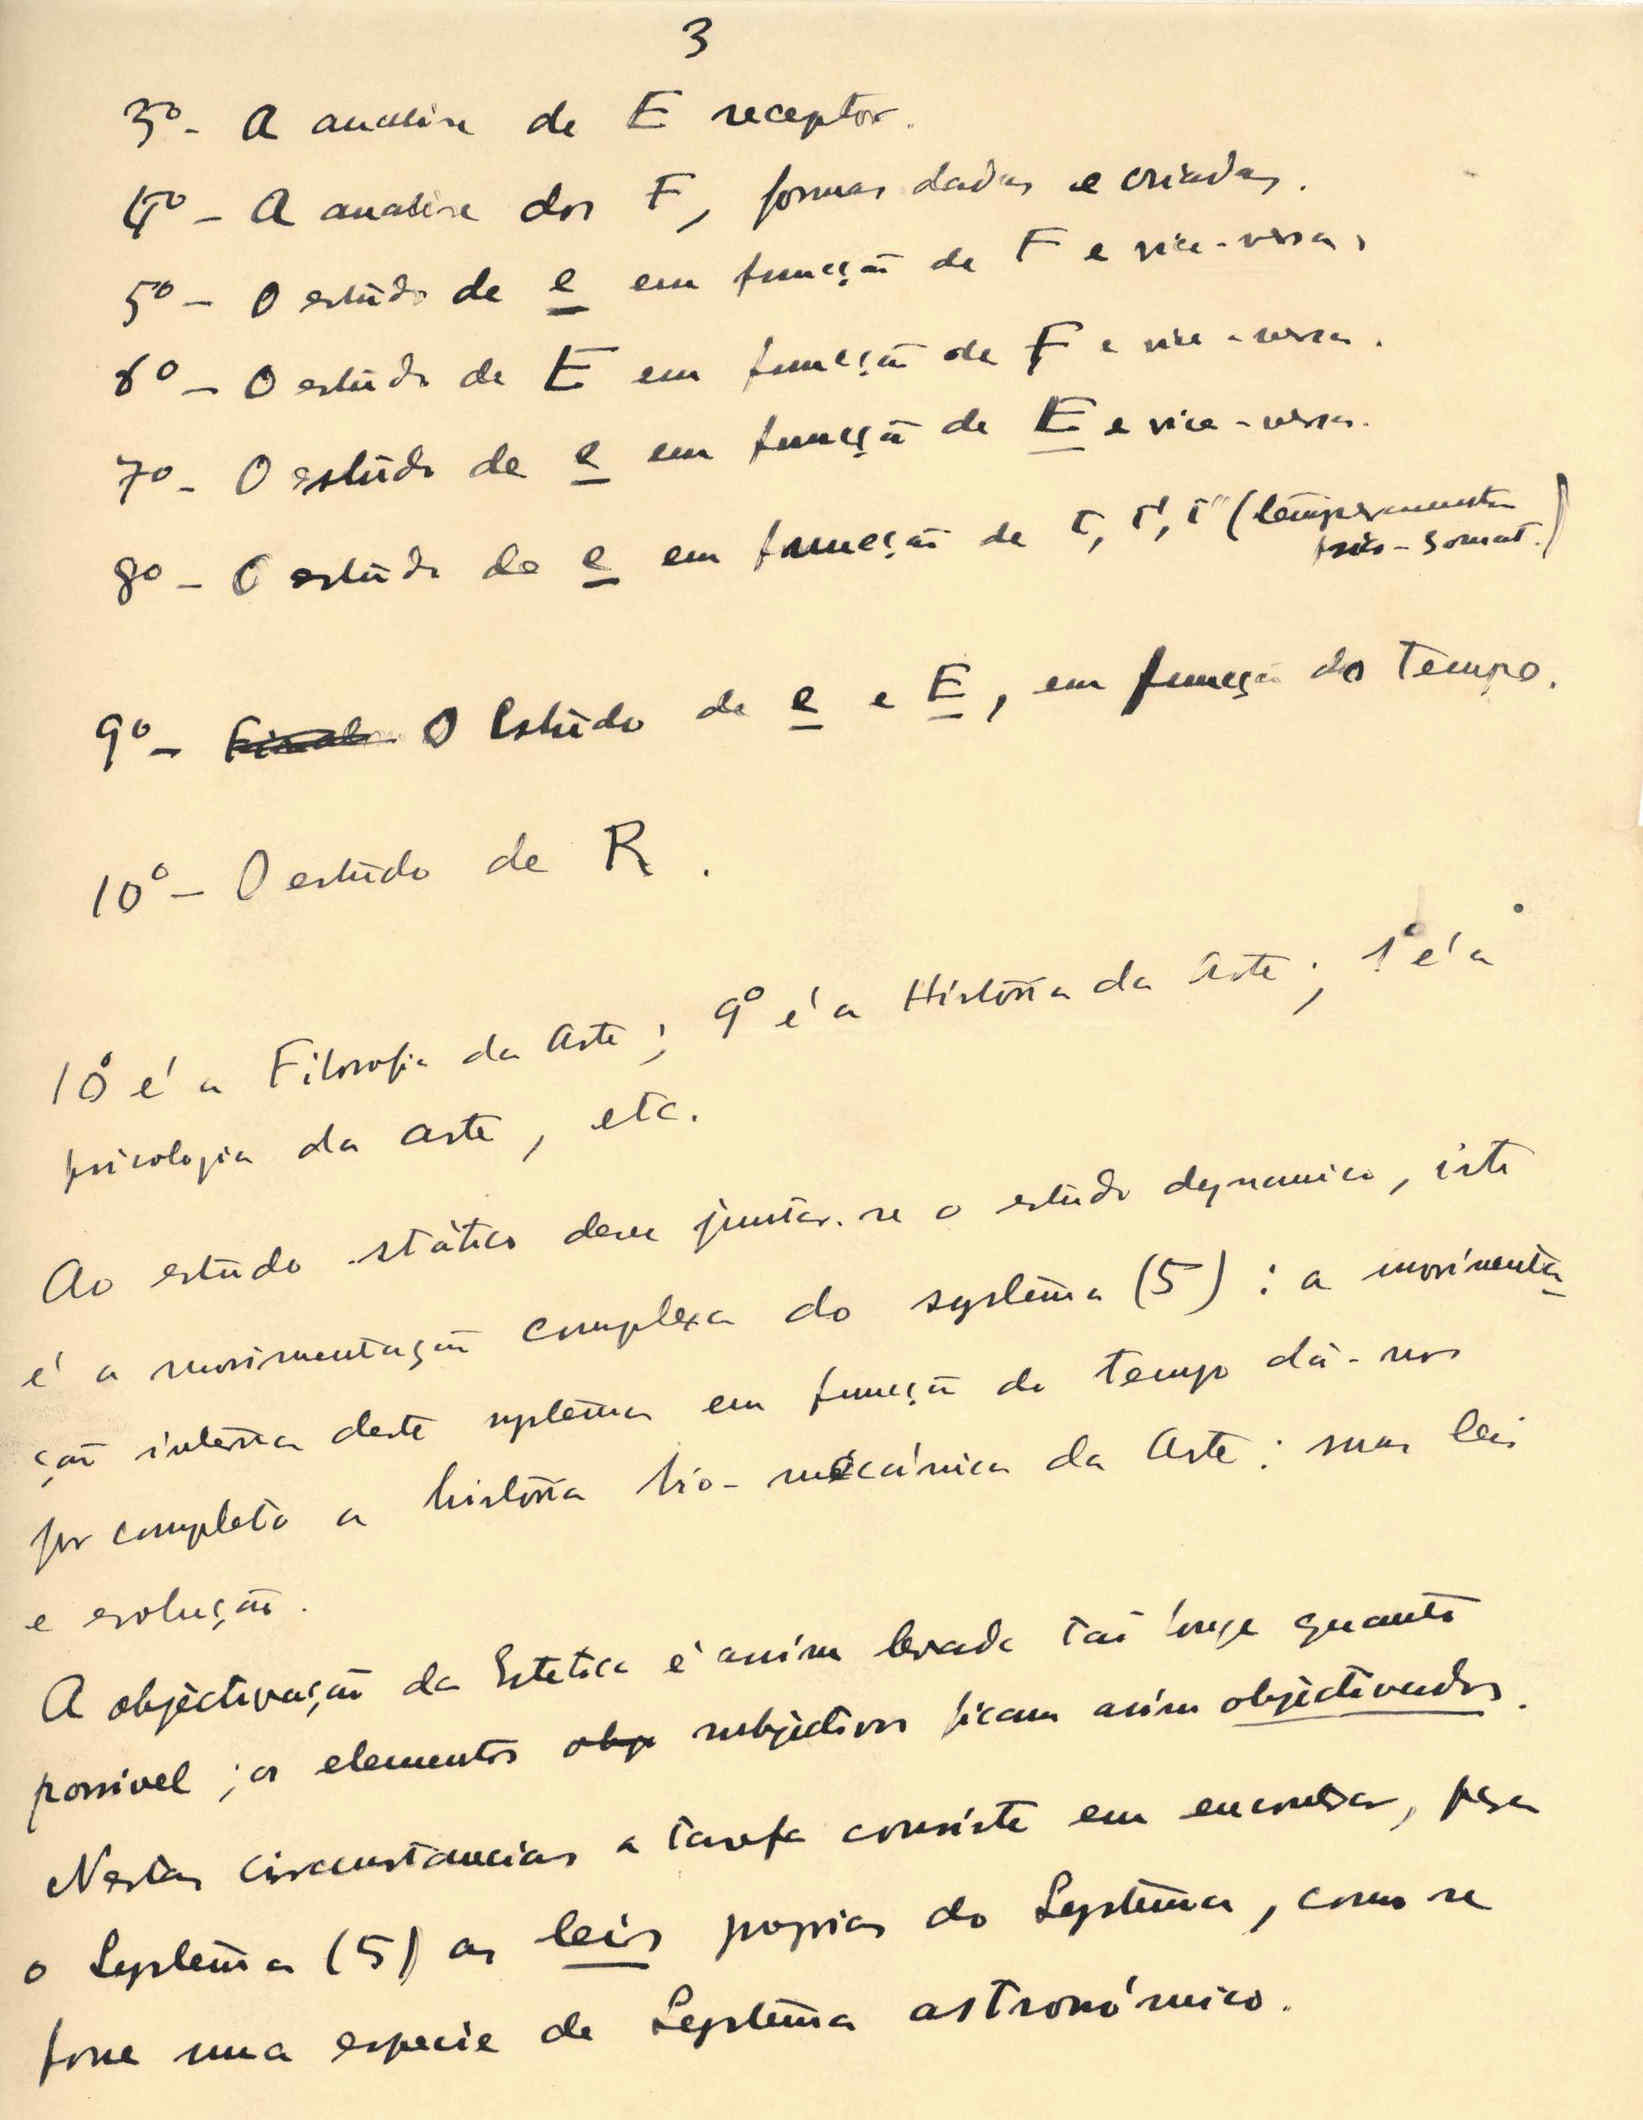 3
3º - A analise de E receptor.
4º - A analise dos F, formas dadas e criadas.
5º - O estudo de e em funcção de F e vice-versa.
6º - O estudo de E em funcção de F e vice-versa.
7º - O estudo de e em funcção de E e vice-versa.
8º - O estudo de e em funcção de T, T', T'' (temperamento
psico-somat.)
9º - O Estudo de e e E, em funcção do Tempo.
10º - O estudo de R.
10º é a Filosofia da Arte; 9º é a História da Arte; 1º é a
psicologia da arte, etc.
Ao estudo státtico deve juntar-se o estudo dynamico, isto
é a movimentação complexa do systema (5): a movimenta-
ção interna deste systema em funcção do tempo dá-nos
por completo a história bio-mecánica da Arte: suas leis
e evolução.
A objectivação da Estetica é assim levada tão longe quanto
possivel; os elementos obje subjectivos ficam assim objectivados.
Nestas circunstancias a tarefa consiste em encontrar, para
o Systema (5) as leis proprias do Systema, como se
fosse uma especie de Systema astronómico.